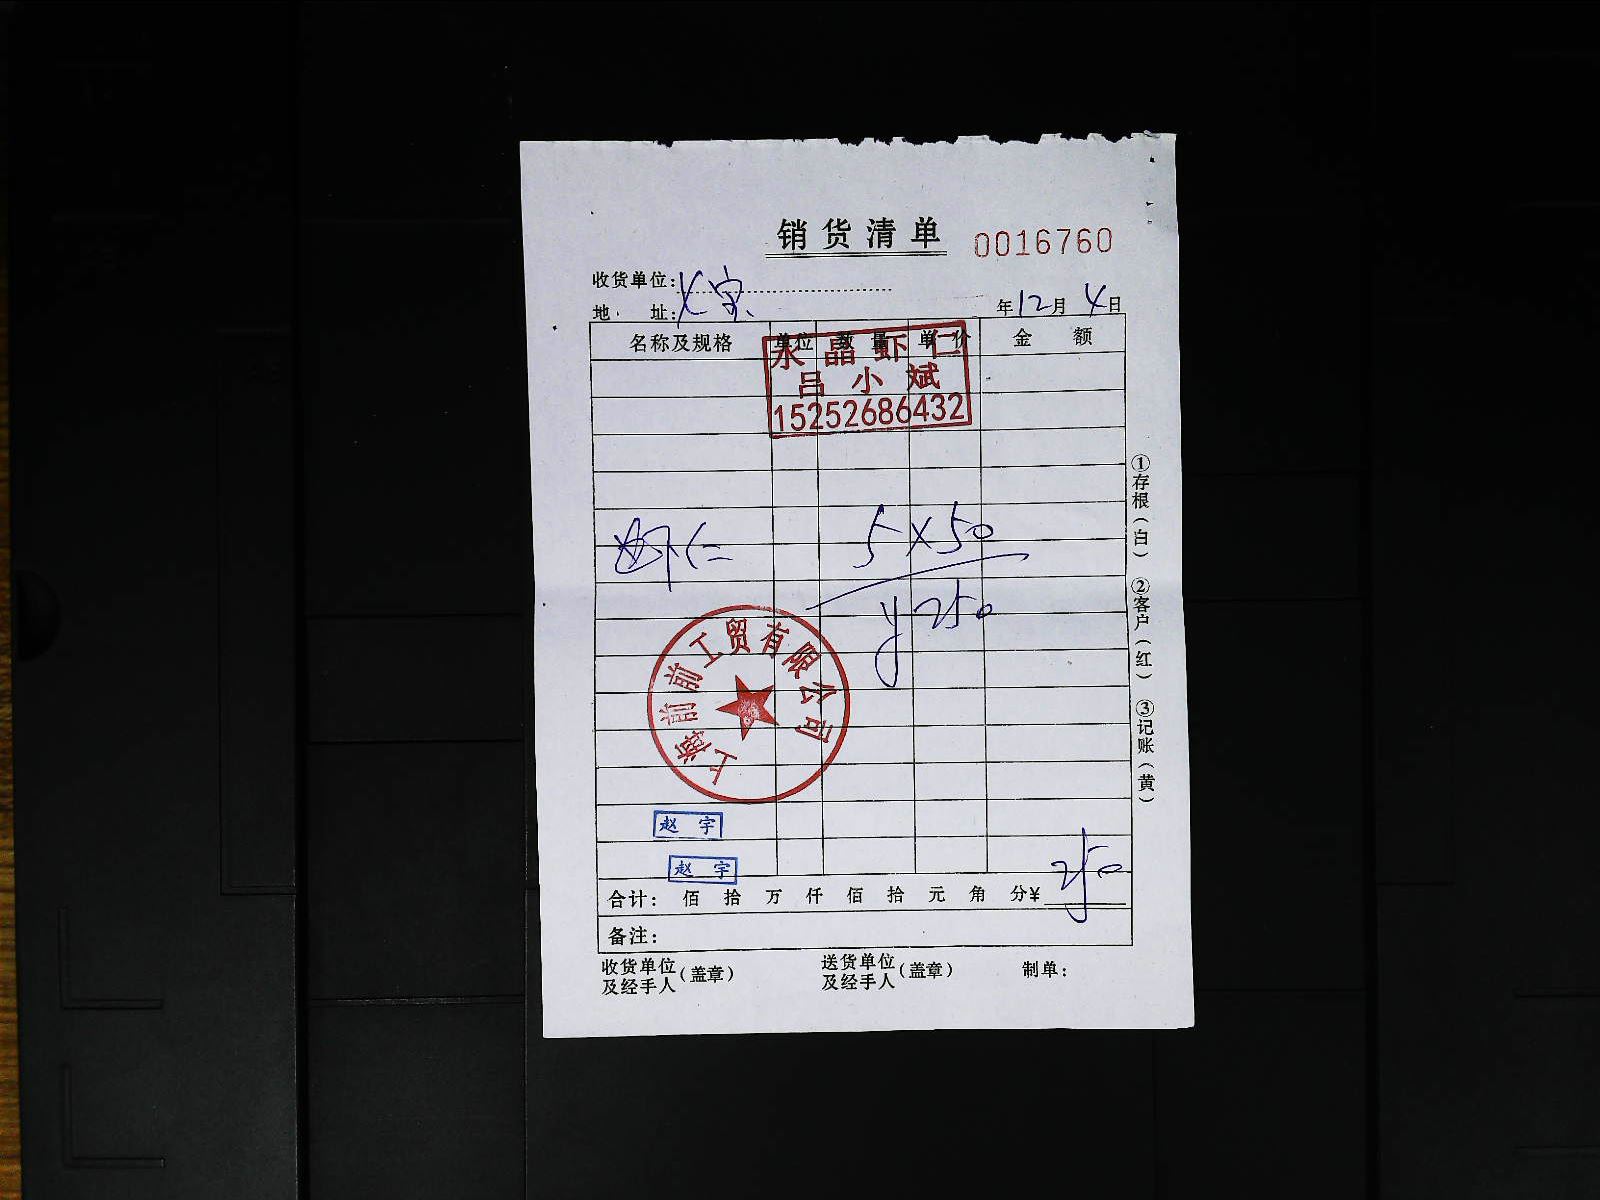 销货清单 0016760
收货单位:
地 址: 年12月4日
名称及规格 单位 数量 单价 金额
永晶虾仁
吕小斌
15252686432
虾仁 5×50
¥250
上海前前工贸有限公司
赵宇
赵宇
合计: 佰 拾 万 仟 佰 拾 元 角 分¥ 250
备注:
收货单位及经手人(盖章) 送货单位及经手人(盖章) 制单:
①存根(白) ②客户(红) ③记账(黄)